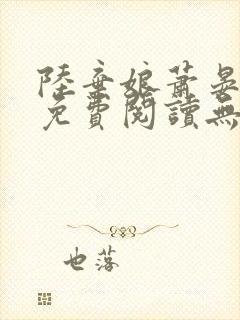 陸棄娘蕭晏
免費閱讀無
也落